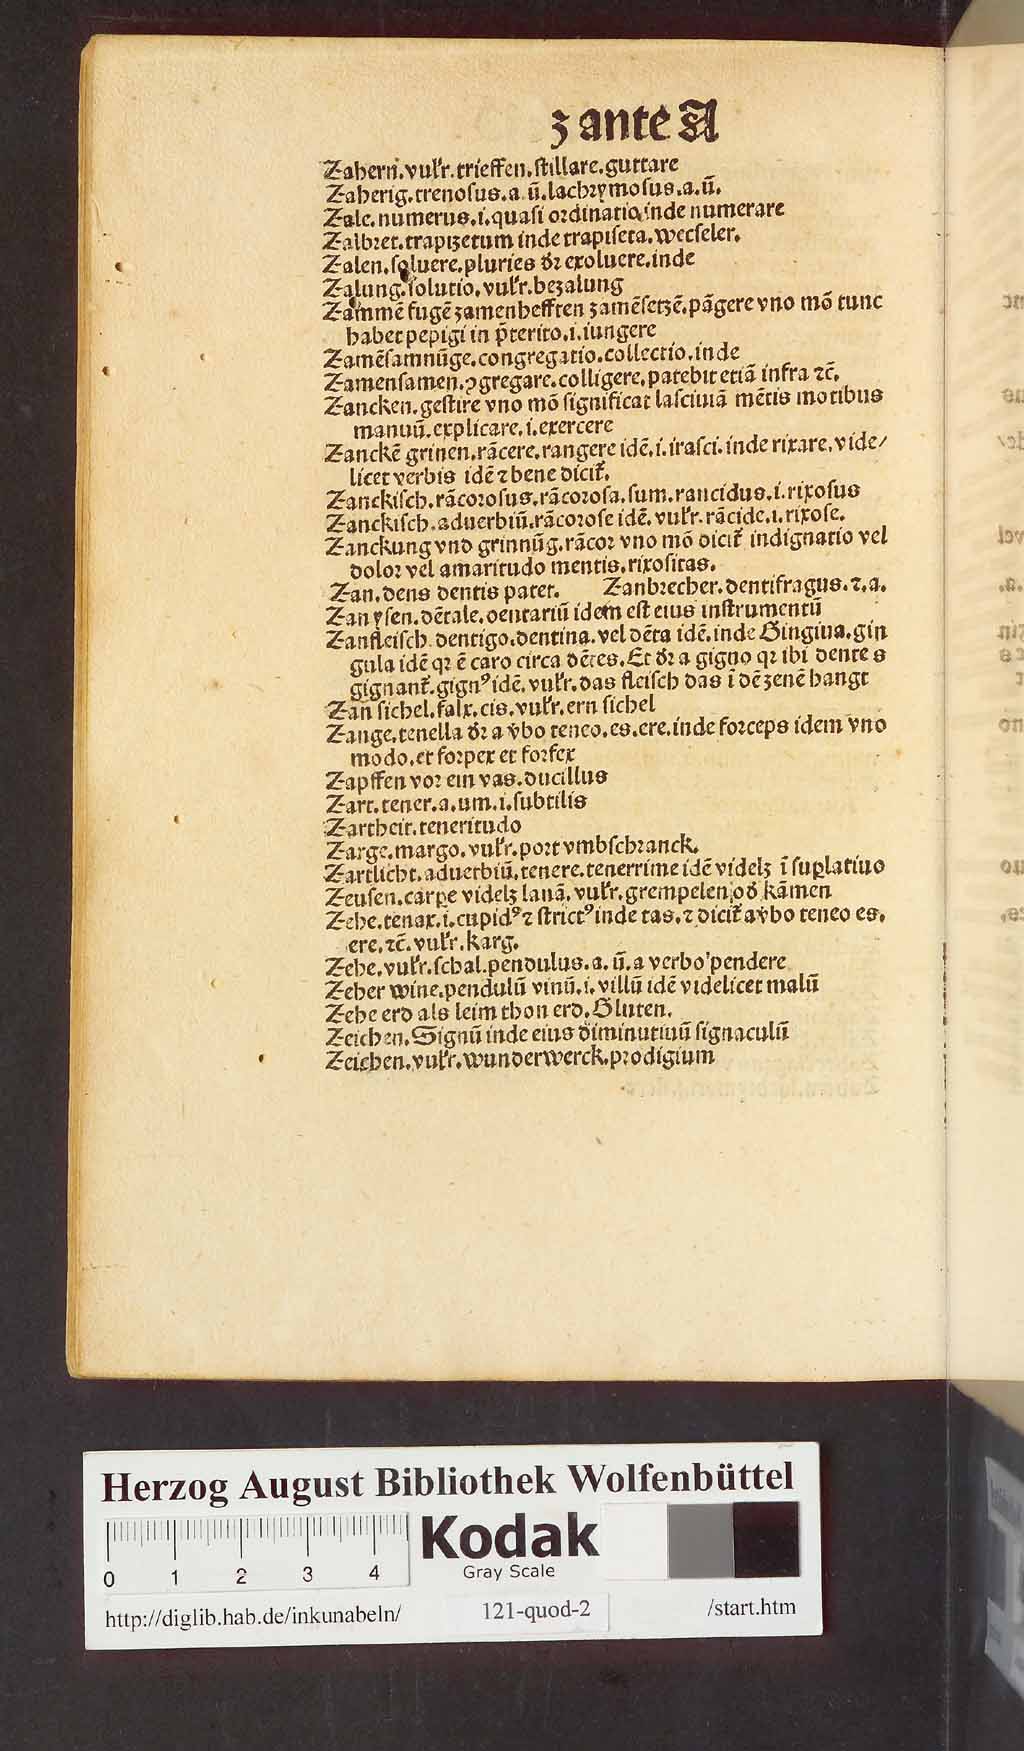 ʒ ante A
Zahern.vulr.trieffen.stillare.guttare
Zaherig.trenosus.a.ū.lachrymosus.a.ū.
Zale.numerus.i.quasi ordinatio inde numerare
Zalbret.trapiʒetum inde trapiseta.wecseler.
Zalen.soluere.pluries dr exoluere.inde
Zalung.solutio.vulr.beʒalung
Zammē fugē ʒamenhefften ʒamēsetʒē.pāgere vno mō tunc
habet pepigi in p̄terito.i.iungere
Zamēsamnūge.congregatio.collectio.inde
Zamensamen.ꝯgregare.colligere.patebit etiā infra ⁊c̄.
Zancken.gestire vno mō significat lasciuiā mētis motibus
manuū.explicare.i.exercere
Zanckē grinen.rācere.rangere idē.i.irasci.inde rixare.vide/
licet verbis idē ⁊ bene dicit̄.
Zanckisch.rācorosus.rācorosa.sum.rancidus.i.rixosus
Zanckisch.aduerbiū.rācorose idē.vulr.rācide.i.rixose.
Zanckung vnd grinnūg.rācor vno mō dicit̄ indignatio vel
dolor vel amaritudo mentis.rixositas.
Zan.dens dentis patet. Zanbrecher.dentifragus.⁊.a.
Zan ysen.dētale.dentariū idem est eius instrumentū
Zanfleisch.dentigo.dentina.vel dēta idē.inde Gingiua.gin
gula idē qr ē caro circa dētes.Et dr a gigno qr ibi dentes
gignant̄.gignꝰ idē.vulr.das fleisch das ī dē ʒenē hangt
Zan sichel.falx.cis.vulr.ern sichel
Zange.tenella dr a v̄bo teneo.es.ere.inde forceps idem vno
modo.et forpex et forfex
Zapffen vor ein vas.ducillus
Zart.tener.a.um.i.subtilis
Zartheit.teneritudo
Zarge.margo.vulr.port vmbschranck.
Zartlicht.aduerbiū.tenere.tenerrime idē videlʒ ī suplatiuo
Zeusen.carpe videlʒ lanā.vulr.grempelen od̄ kāmen
Zehe.tenax.i.cupidꝰ ⁊ strictꝰ inde tas.⁊ dicit̄ a v̄bo teneo es.
ere.⁊c̄.vulr.karg.
Zehe.vulr.schal.pendulus.a.ū.a verbo pendere
Zeher wine.pendulū vinū.i.villū idē videlicet malū
Zehe erd als leim thon erd.Gluten.
Zeichen.Signū inde eius diminutiuū signaculū
Zeichen.vulr.wunderwerck.prodigium
Herzog August Bibliothek Wolfenbüttel
0 1 2 3 4
Kodak
Gray Scale
http://diglib.hab.de/inkunabeln/ 121-quod-2 /start.htm